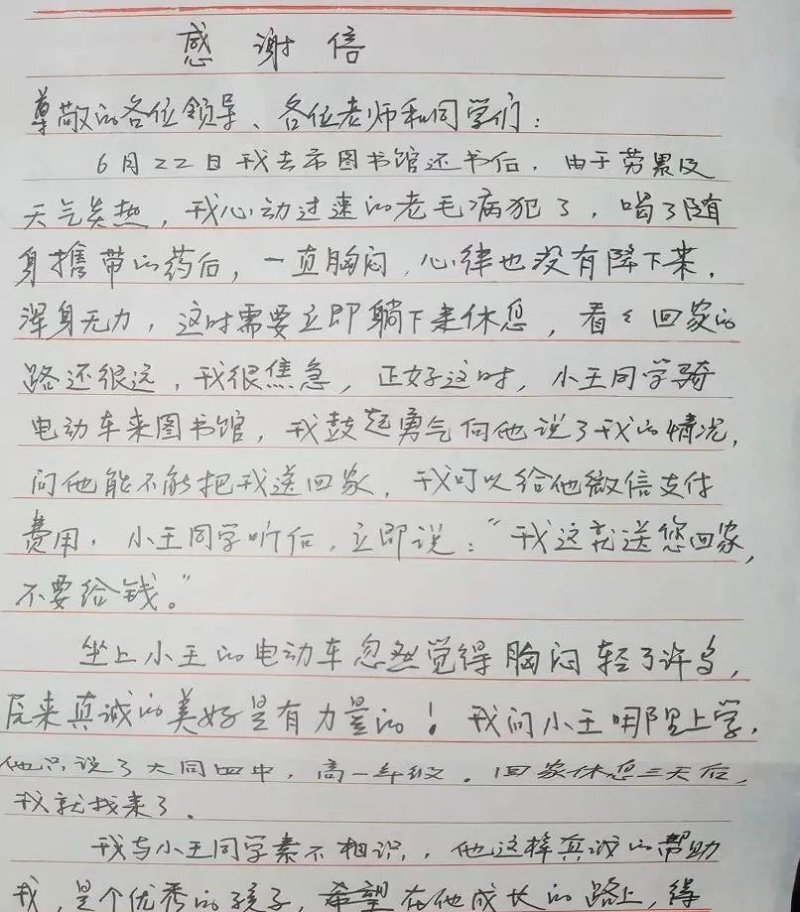 感谢信
尊敬的各位领导、各位老师和同学们：
6月22日我去市图书馆还书后，由于劳累及
天气炎热，我心动过速的老毛病犯了，喝了随
身携带的药后，一直胸闷，心律也没有降下来，
浑身无力，这时需要立即躺下来休息，看看回家的
路还很远，我很焦急，正好这时，小王同学骑
电动车来图书馆，我鼓起勇气向他说了我的情况，
问他能不能把我送回家，我可以给他微信支付
费用，小王同学听后，立即说：“我这就送您回家，
不要给钱。”
坐上小王的电动车忽然觉得胸闷轻了许多，
原来真诚的美好是有力量的！我问小王哪里上学，
他只说了大同四中，高一年级。回家休息三天后，
我就找来了。
我与小王同学素不相识，，他这样真诚的帮助
我，是个优秀的孩子，希望在他成长的路上，得